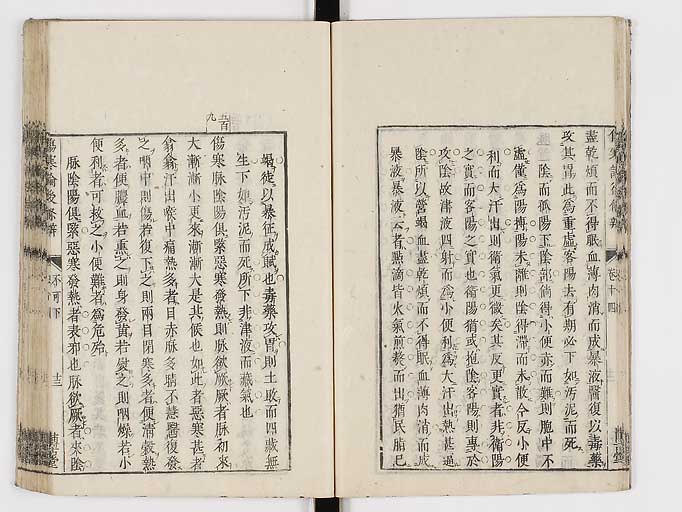 盡乾煩而不得眠血薄肉消而成暴液醫復以毒藥
攻其胃此為重虛客陽去有期必下如汚泥而死
陰而孤陽下陰部倘得小便亦而難則胸中不
虛僅為陽搏陽未離則陰得滯而未散今反小便
利而大汗出則衞氣更微矣其反更實者非衞陽
之實而客陽之實也衞陽猶或抱陰客陽則專於
攻陰故津液四射而為小便利為大汗出熱甚逼
陰所以營竭血盡乾煩而不得眠血薄肉消而成
暴液暴液云者點滴皆火氣煎熬而出猶民脂已
竭徒以暴征成賦也毒藥攻胃則土敗而四藏無
生下如汚泥而死所下非津液而藏氣也
傷寒脉陰陽俱緊惡寒發熱則脉欲厥厥者脉初來
大漸漸小更來漸漸大是其候也如此者惡寒甚者
翕翕汗出喉中痛熱多者目赤脉多睛不慧醫復發
之咽中則傷若復下之則兩目閉寒多者便清穀熱
多者便膿血若熏之則身發黃若熨之則咽燥若小
便利者可救之小便難者為危殆
脉陰陽俱緊惡寒發熱者表邪也脉欲厥者來陰
傷寒論後條辨
不可下
十三
卷十四
五百九